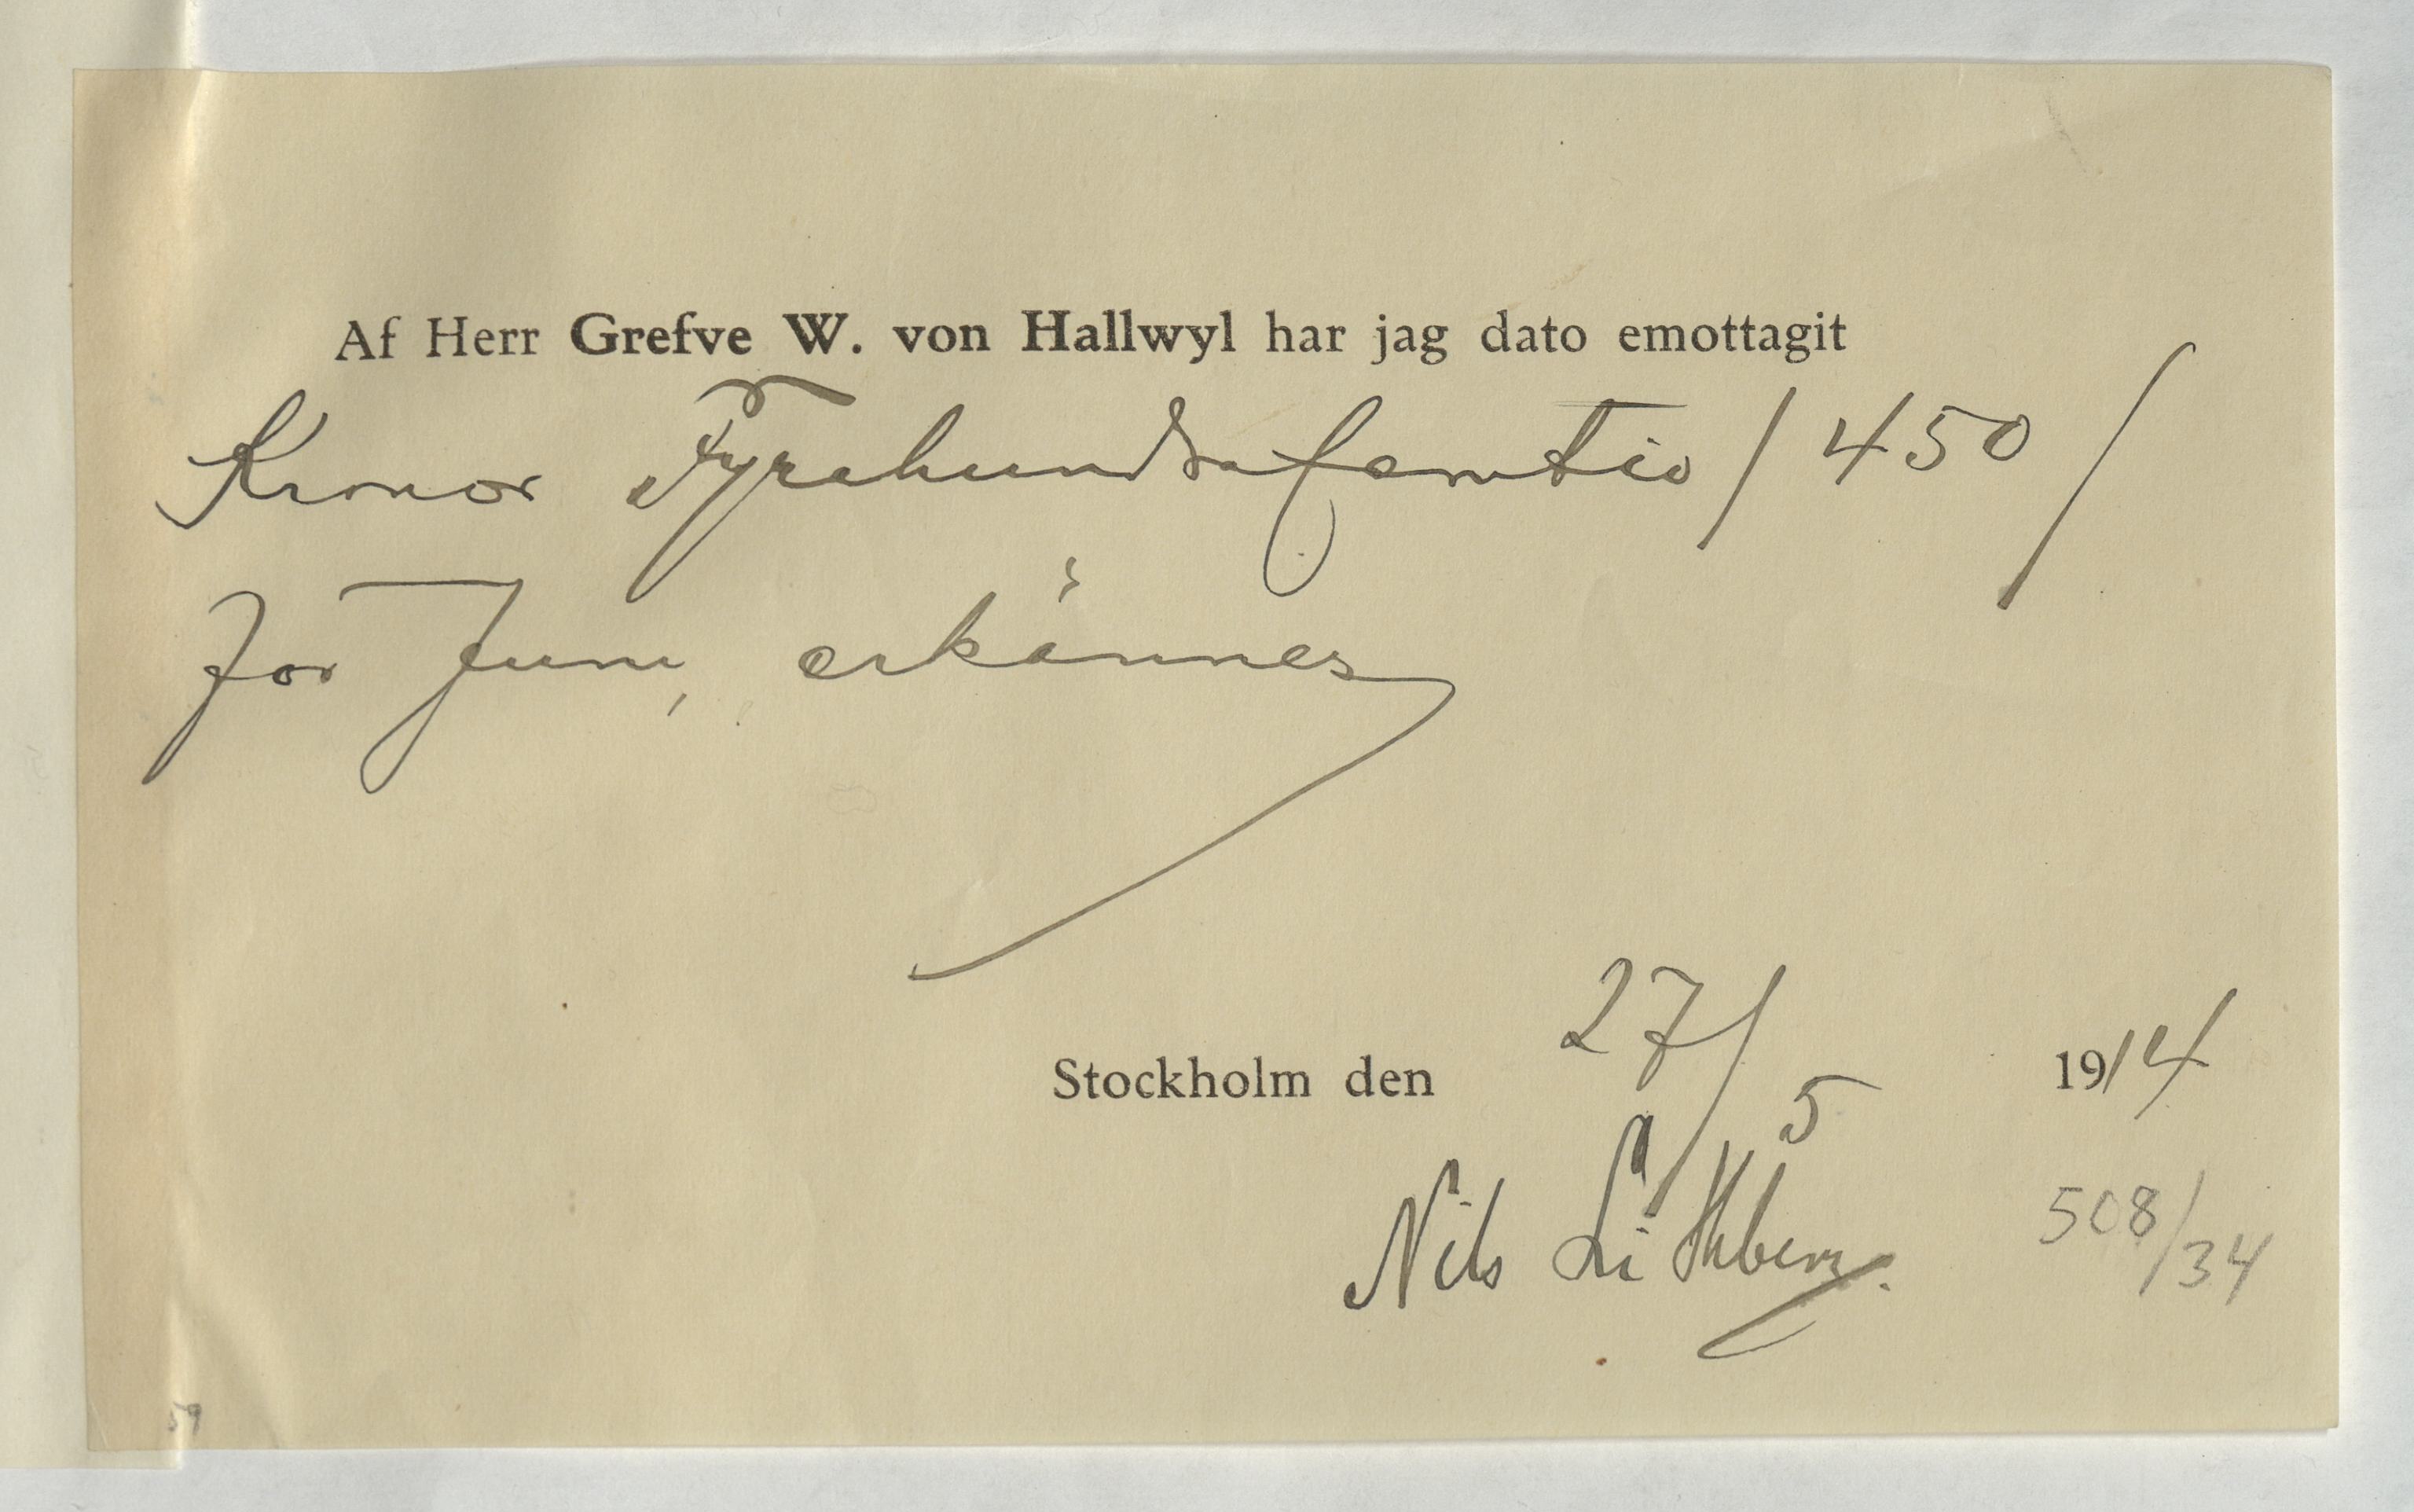 Af Herr Grefve W. von Hallwyl har jag dato emottagit
Kronor Fyrahundrafemtio / 450 /
för Juni, erkännes
Stockholm den 27/5 1914
Nils Lithberg.
508/34
59